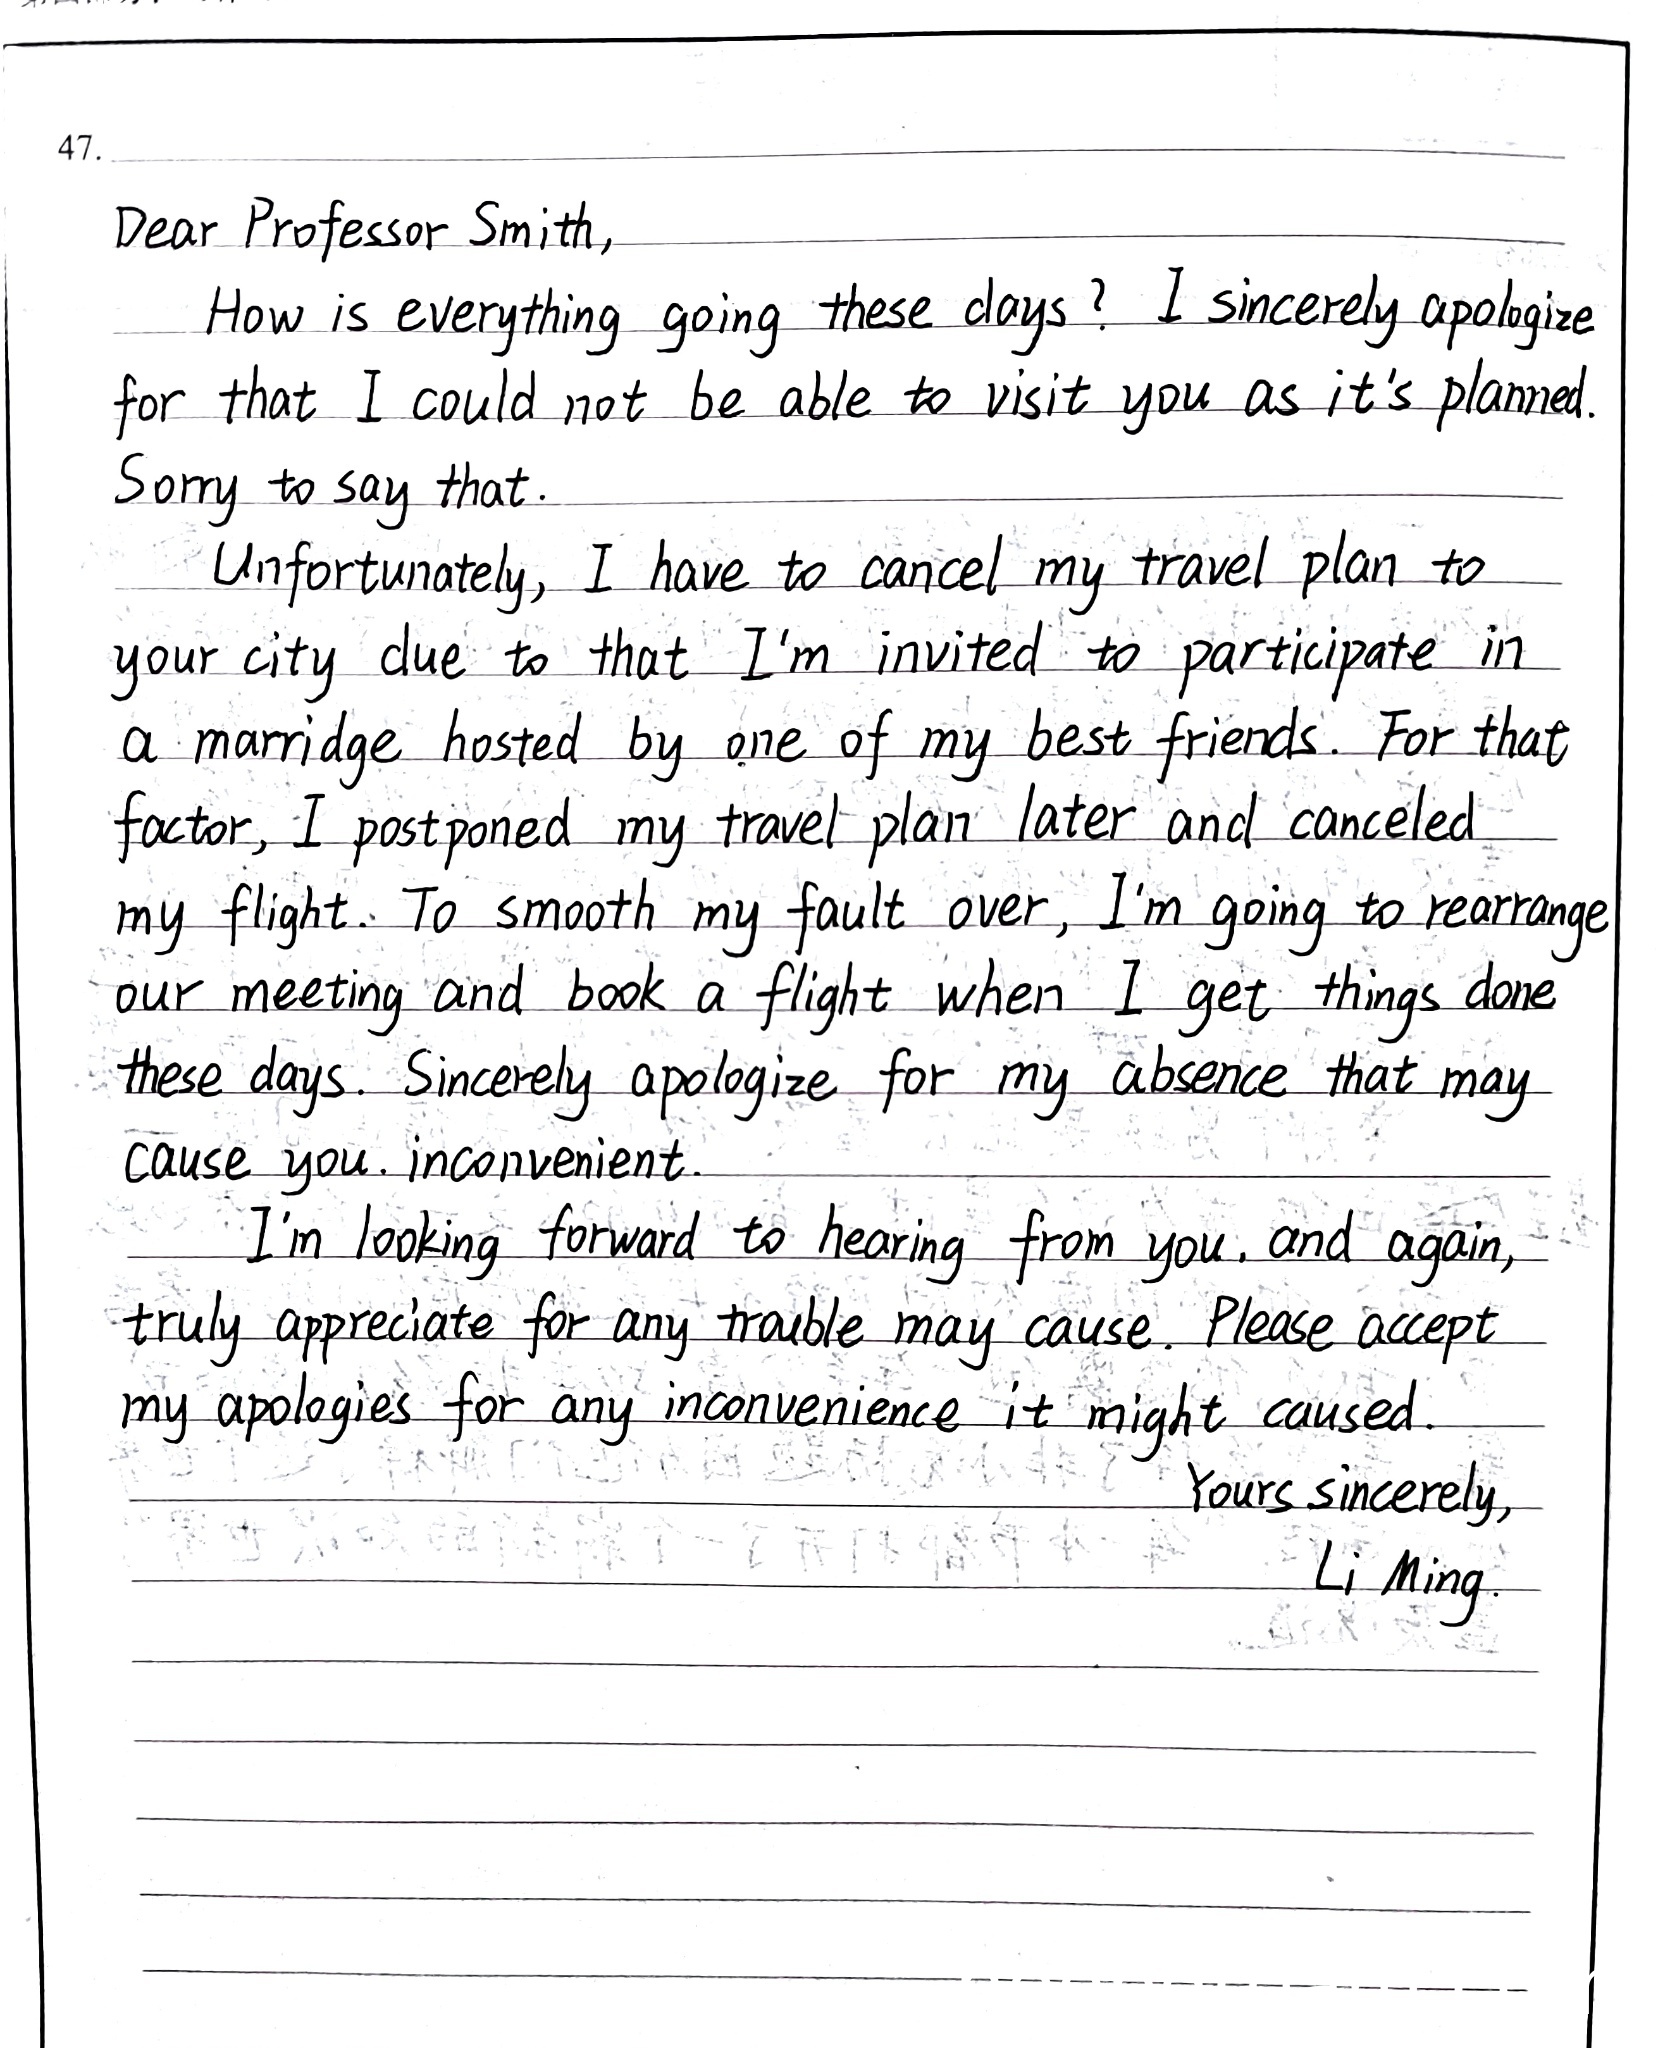 47.
Dear Professor Smith,
How is everything going these days? I sincerely apologize
for that I could not be able to visit you as it's planned.
Sorry to say that.
Unfortunately, I have to cancel my travel plan to
your city due to that I'm invited to participate in
a marridge hosted by one of my best friends. For that
factor, I postponed my travel plan later and canceled
my flight. To smooth my fault over, I'm going to rearrange
our meeting and book a flight when I get things done
these days. Sincerely apologize for my absence that may
cause you inconvenient.
I'm looking forward to hearing from you. and again,
truly appreciate for any trouble may cause. Please accept
my apologies for any inconvenience it might caused.
Yours sincerely,
Li Ming.